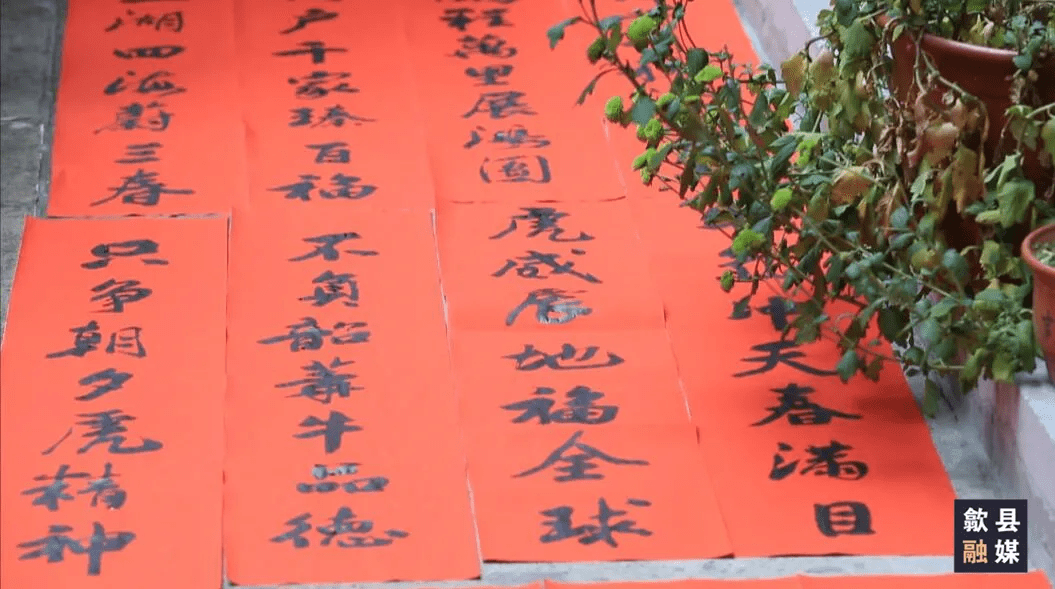 程萬里展鴻圖
户千家臻百福
湖四海蔚三春
冲天春满目
虎地福全球
不負韶華牛品德
只争朝夕虎精神
歙县
融媒